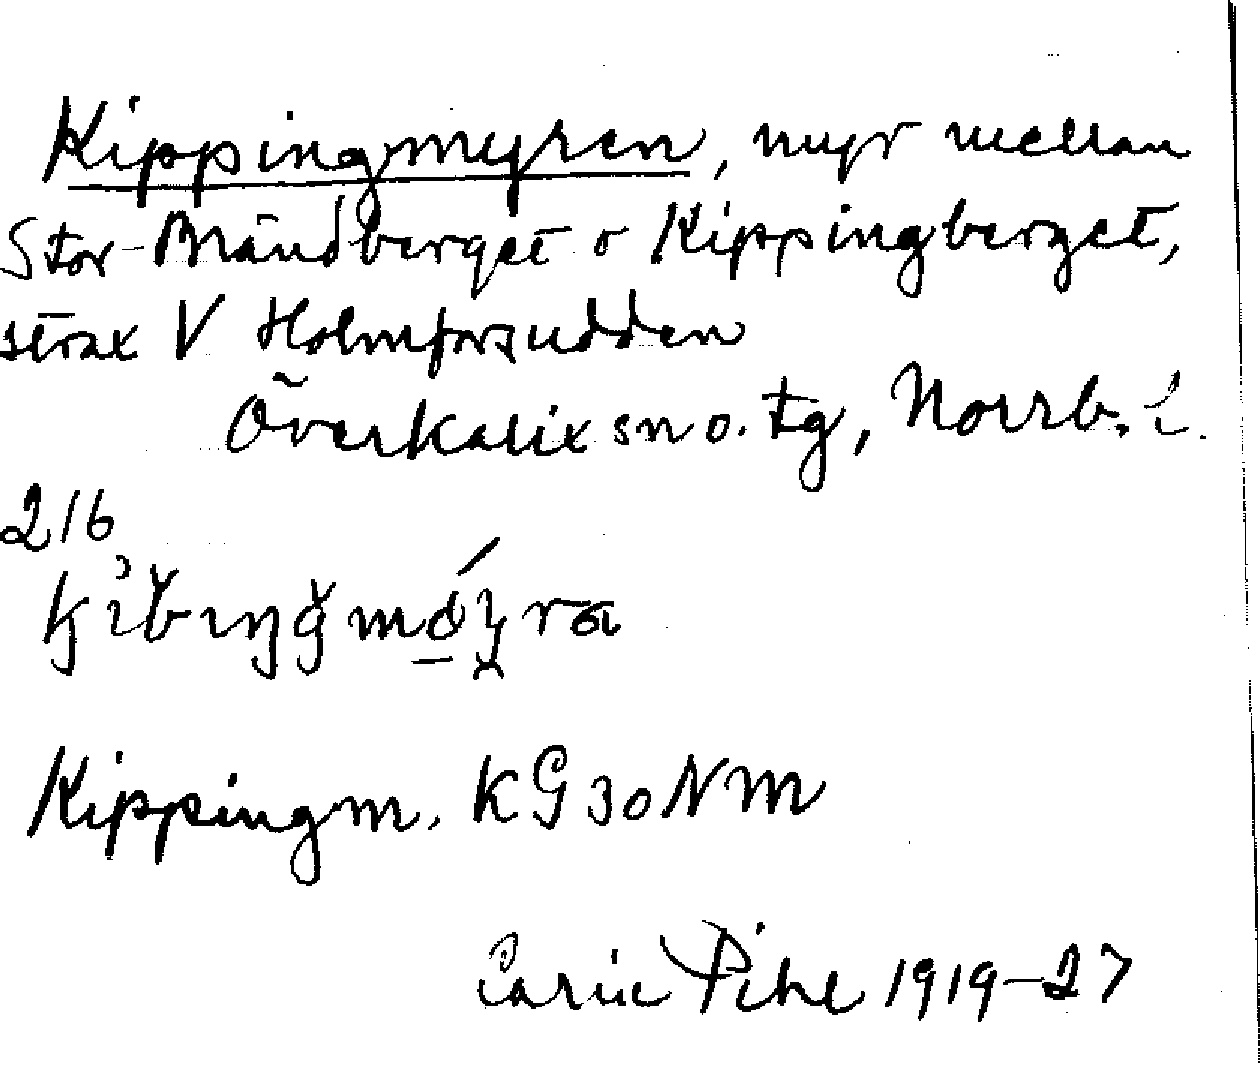 Kippingmyren, myr mellan
Stor-Brändberget o Kippingberget,
strax V Holmforsudden
Överkalix sn o. tg, Norrb. l.
216
Kippingm. KG 30 NM
Carin Pihl 1919-27